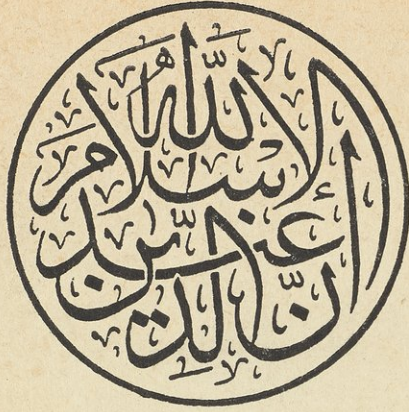 إِنَّ الدِّينَ عِنْدَ اللَّهِ الإِسْلَامُ